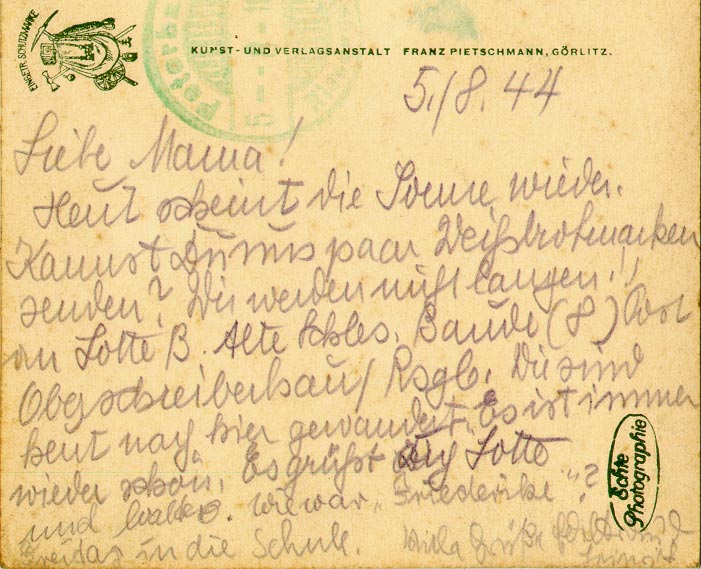 EINGETR. SCHUTZMARKE
KUNST- UND VERLAGSANSTALT FRANZ PIETSCHMANN, GÖRLITZ.
Peterb
5./8.44
Liebe Mama!
Heut scheint die Sonne wieder.
Kannst Du uns paar Weißbrotmarken
senden? Wir werden nicht langen!!
an Lotte B. Alte Schles. Baude (8) Post
Oberschreiberhau/Rsgb. Wir sind
heut nach hier gewandert. Es ist immer
wieder schön. Es grüßt Dich Lotte
und Walter. Wie war „Friederike"?
Freitag in die Schule. Viele Grüße
Echte
Photographie